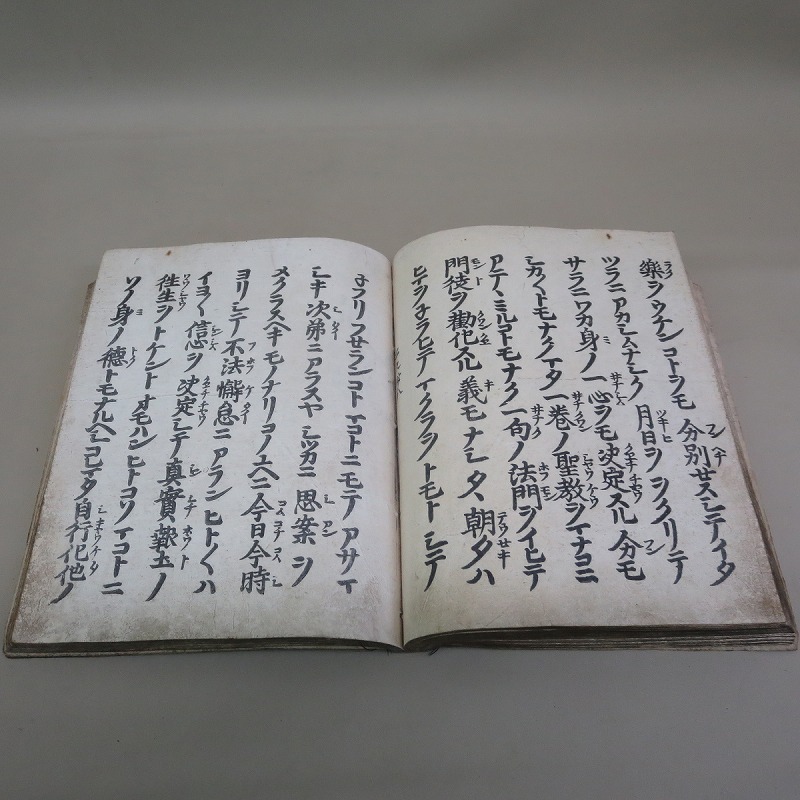 樂ヲウケンコトヲモ分別セスシテイタ
ツラニアカシムナシク月日ヲヲクリテ
サラニワカ身ノ一心ヲモ決定スル分モ
シカ〱トモナクマタ一巻ノ聖教ヲマナコニ
アテヽミルコトモナク一句ノ法門ヲイヒテ
門徒ヲ勸化スル義モナシタヽ朝夕ハ
ヒマヲネラヒテマクラヲトモトシテ
子フリフサランコトマコトニモテアサマ
シキ次第ニアラスヤシツカニ思案ヲ
メクラスヘキモノナリコノユヘニ今日今時
ヨリシテ不法懈怠ニアランヒト〱ハ
イヨ〱信心ヲ決定シテ真實報土ノ
往生ヲトケントオモハンヒトコソマコトニ
ソノ身ノ徳トモナルヘシコレマタ自行化他ノ